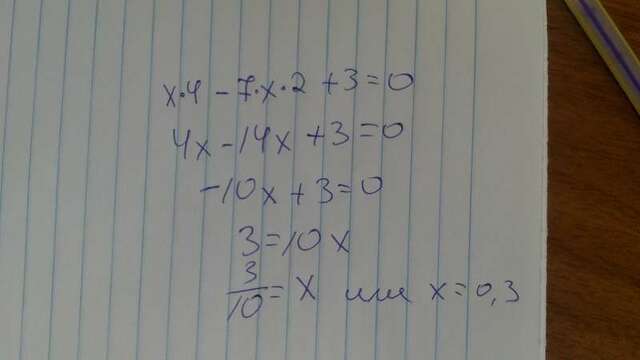 x·4 - 7·x·2 + 3 = 0
4x - 14x + 3 = 0
-10x + 3 = 0
3 = 10x
3/10 = x или x = 0,3